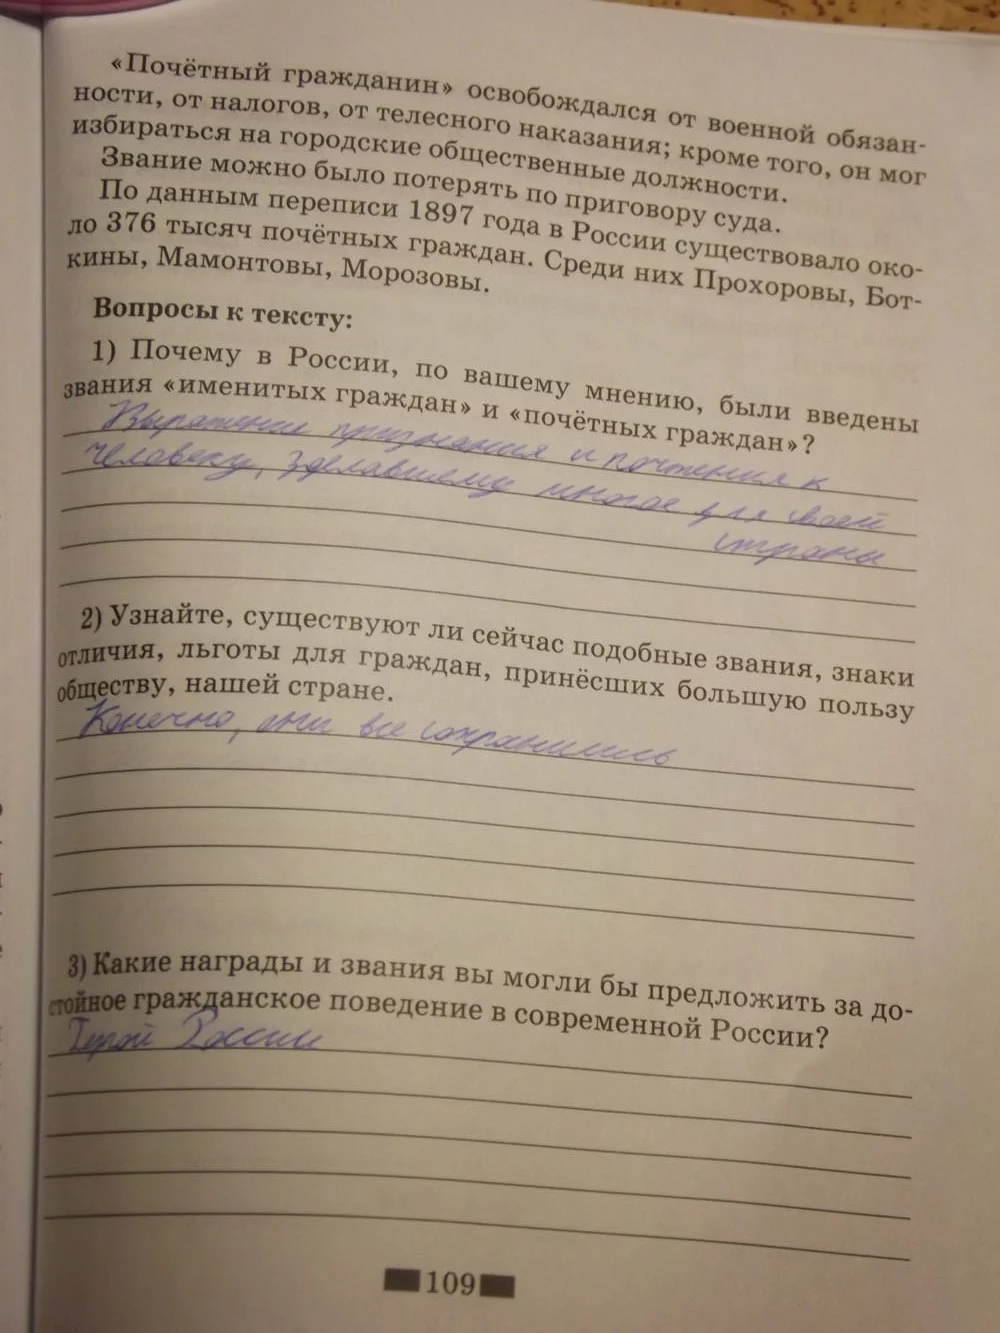 «Почётный гражданин» освобождался от военной обязан-
ности, от налогов, от телесного наказания; кроме того, он мог
избираться на городские общественные должности.
Звание можно было потерять по приговору суда.
По данным переписи 1897 года в России существовало око-
ло 376 тысяч почётных граждан. Среди них Прохоровы, Бот-
кины, Мамонтовы, Морозовы.
Вопросы к тексту:
1) Почему в России, по вашему мнению, были введены
звания «именитых граждан» и «почётных граждан»?
Выражение признания и почтения к
человеку, зделавшему многое для своей
страны
2) Узнайте, существуют ли сейчас подобные звания, знаки
отличия, льготы для граждан, принёсших большую пользу
обществу, нашей стране.
Конечно, они все сохранились
3) Какие награды и звания вы могли бы предложить за до-
стойное гражданское поведение в современной России?
Герой России
109